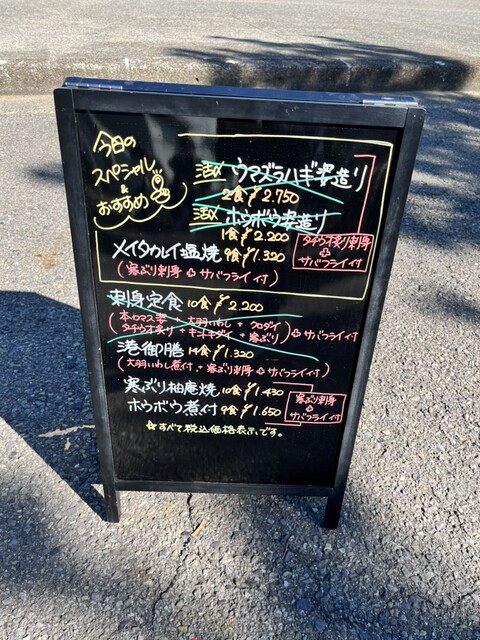 今日の
スペシャル
&
おすすめ
活〆 ウマズラハギ姿造り
2食 ¥2.750
活〆 ホウボウ姿造り
1食 ¥2.200
タチウオ炙り刺身
✚
サバフライ付
メイタカレイ塩焼 9食 ¥1.320
(寒ぶり刺身 ✚ サバフライ付)
刺身定食 10食 ¥2.200
(本ロマス + 大羽いわし + クロダイ
タチウオ炙り + キントキダイ + 寒ぶり) ✚ サバフライ付
港御膳 14食 ¥1.320
(大羽いわし煮付 + 寒ぶり刺身 ✚ サバフライ付)
寒ぶり柚庵焼 10食 ¥1.430
ホウボウ煮付 9食 ¥1.650
寒ぶり刺身
✚
サバフライ付
☆すべて税込価格表示です。